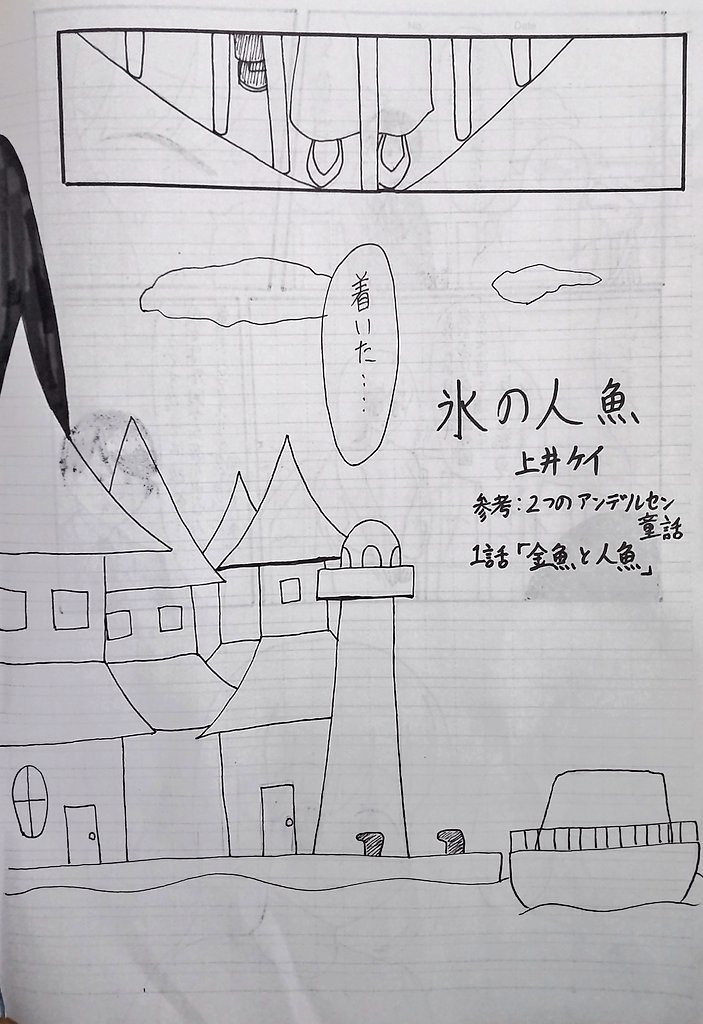 着いた・・・・・
氷の人魚
上井ケイ
参考:2つのアンデルセン
童話
1話「金魚と人魚」
No.
Date